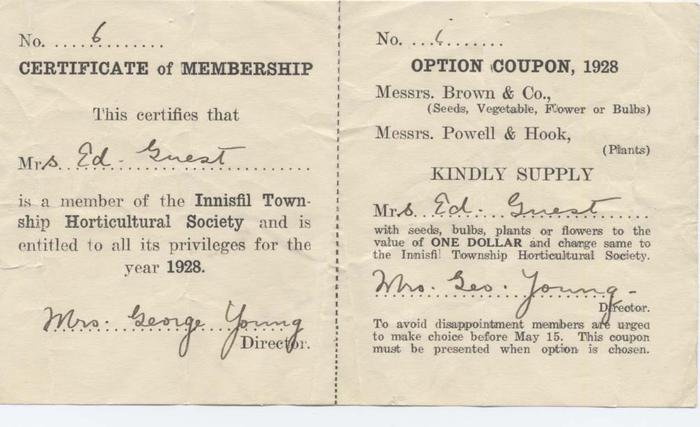 No. 6
CERTIFICATE of MEMBERSHIP
This certifies that
Mrs. Ed. Guest
is a member of the Innisfil Town-
ship Horticultural Society and is
entitled to all its privileges for the
year 1928.
Mrs. George Young
Director.
No.
OPTION COUPON, 1928
Messrs. Brown & Co.,
(Seeds, Vegetable, Flower or Bulbs)
Messrs. Powell & Hook,
(Plants)
KINDLY SUPPLY
Mrs. Ed. Guest
with seeds, bulbs, plants or flowers to the
value of ONE DOLLAR and charge same to
the Innisfil Township Horticultural Society.
Mrs. Geo. Young
Director.
To avoid disappointment members are urged
to make choice before May 15. This coupon
must be presented when option is chosen.